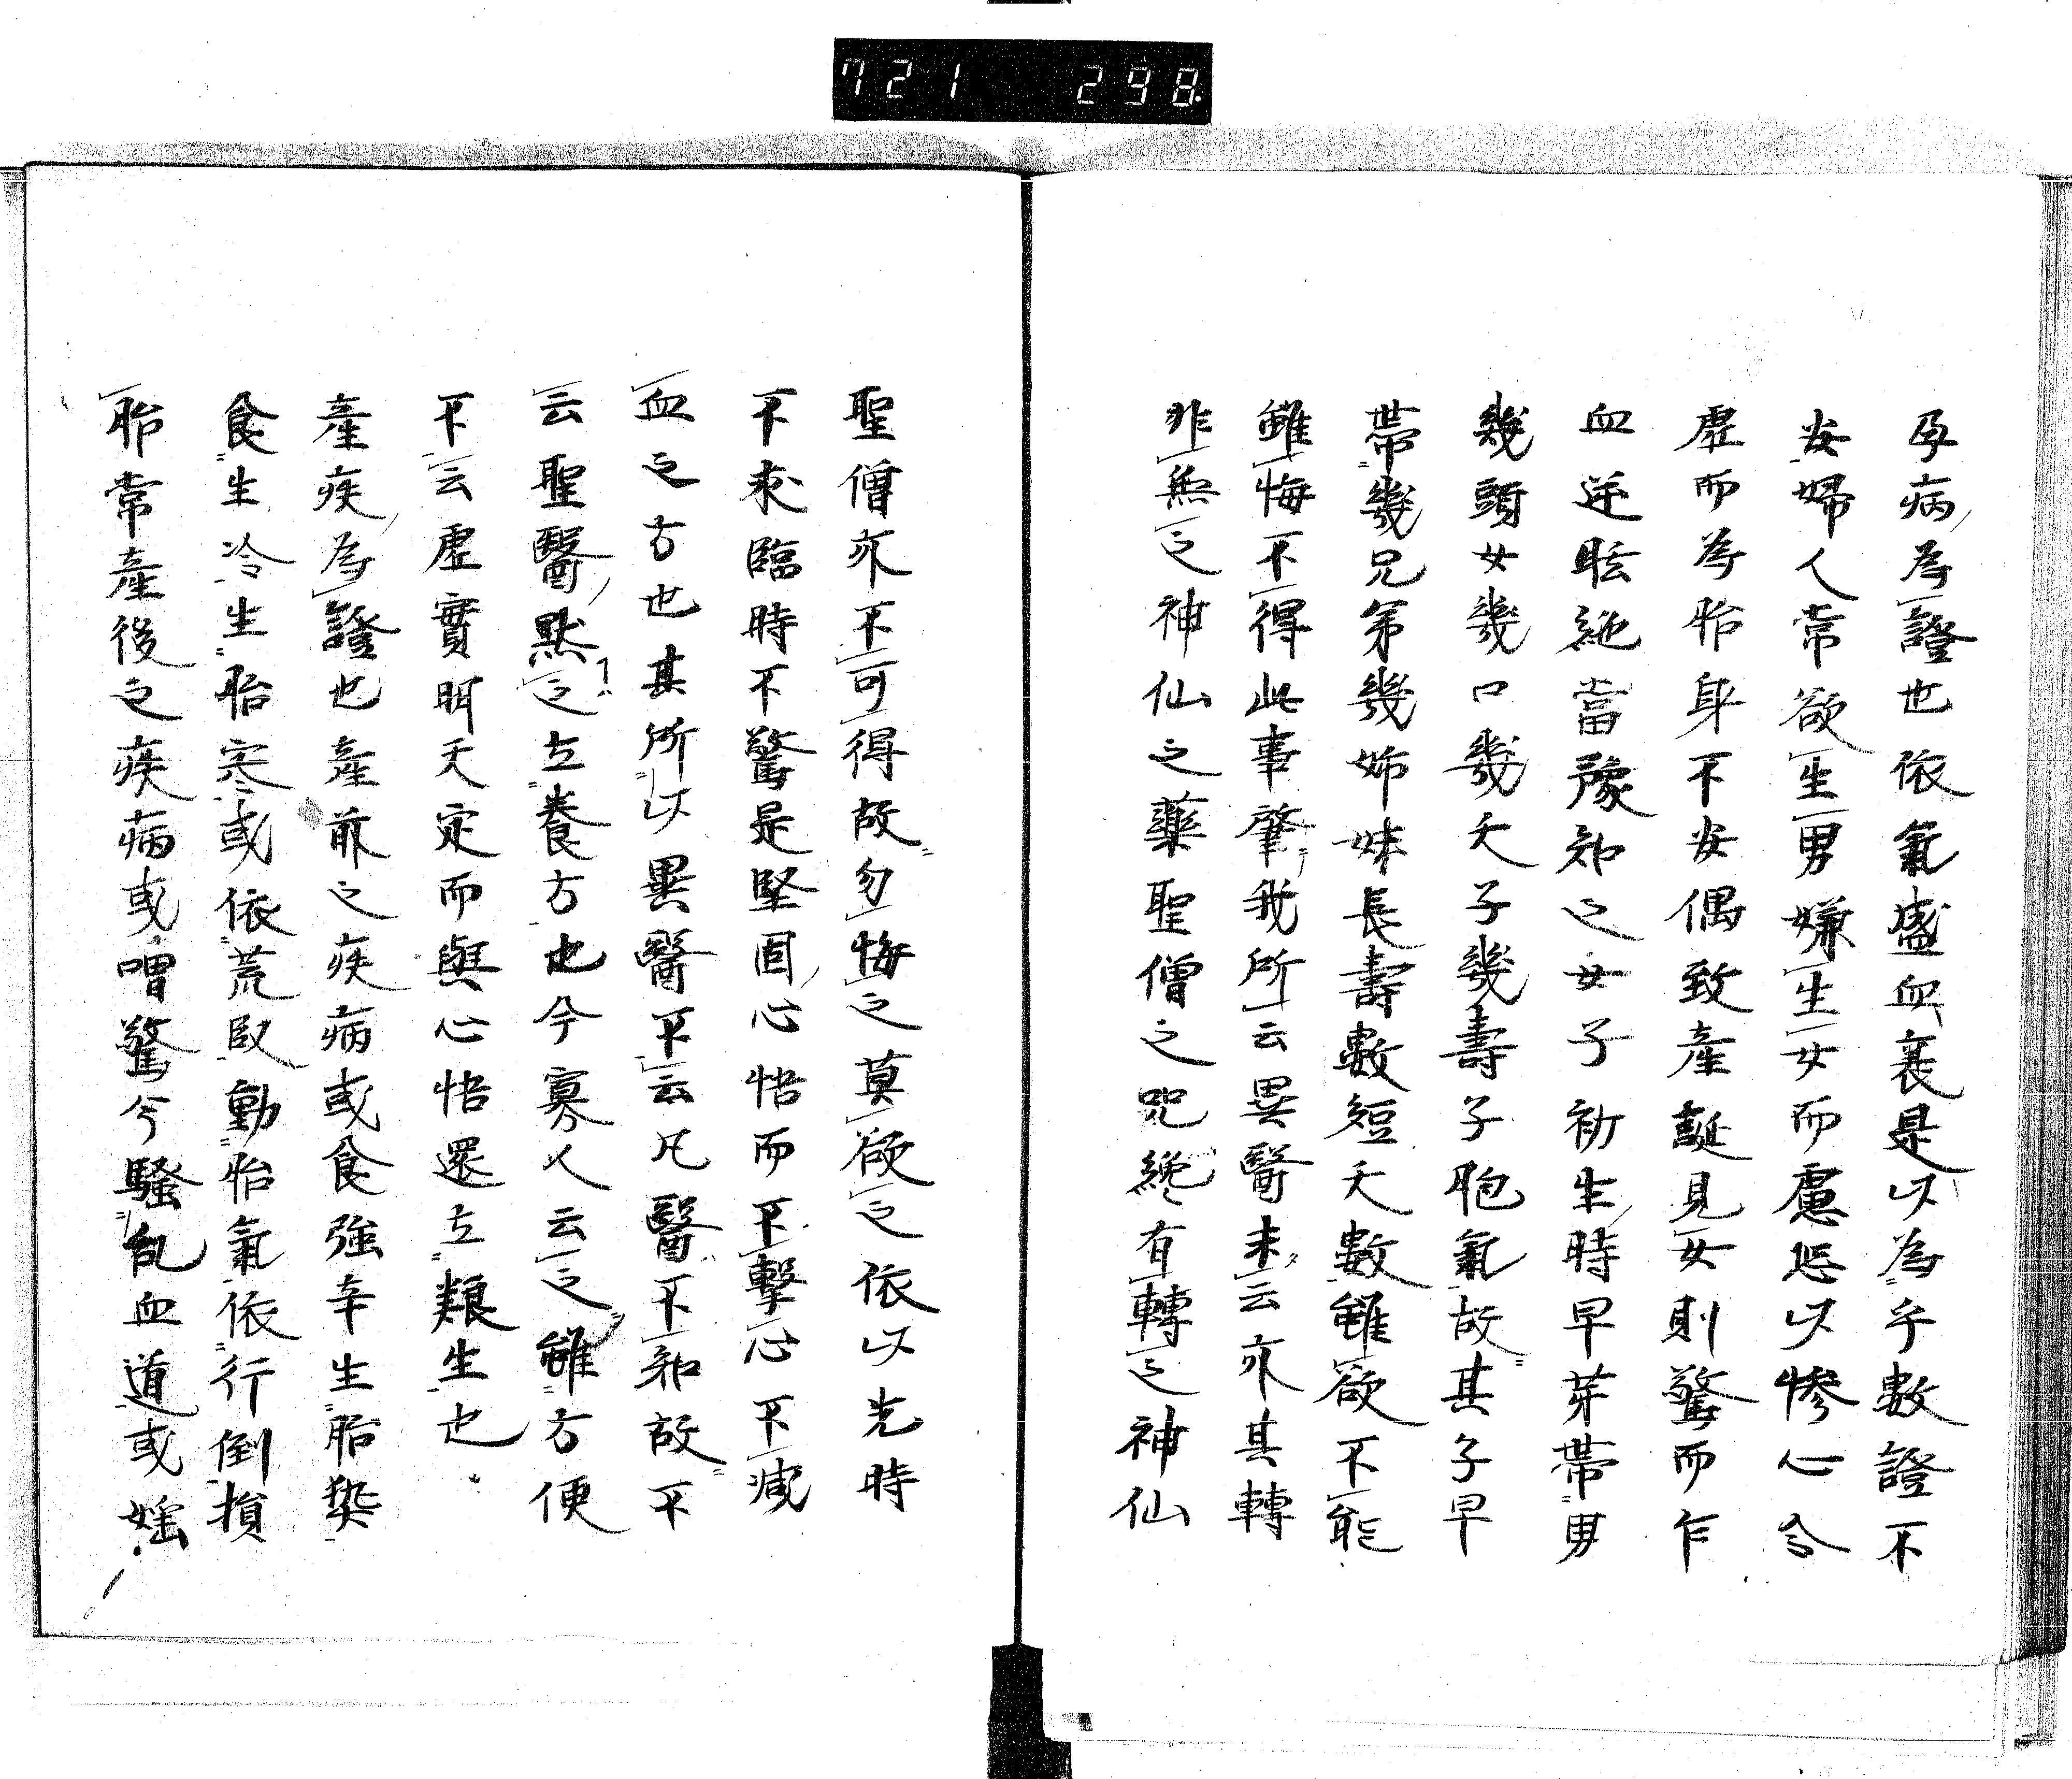 721 298
孕病為證也依氣盛血衰是以為乎數證不
安婦人常欲生男嫌生女而慮思以惨心令
虚而為胎身不安偶致産誕見女則驚而乍
血逆眩絶當豫知之女子初生時早芽帯男
幾頭女幾口幾夭子幾壽子胞氣故其子早
帯幾兄弟幾姉妹長壽數短夭數雖欲不能
雖悔不得此事肇我所云異醫未云亦其轉
非無之神仙之藥聖僧之咒纔有轉之神仙
聖僧亦不可得故勿悔之莫欲之依以先時
不求臨時不驚是堅固心悟而不撃心不減
血之方也其所以異醫不云凡醫不知故不
云聖醫黙之立養方也今寡人云之雖方便
不云虚實明天定而與心悟還立頼生也
産疾為證也産前之疾病或食強辛生胎染
食生冷生胎寒或依荒臥動胎氣依行倒損
胎常産後之疾病或噌驚兮騒乱血道或婬